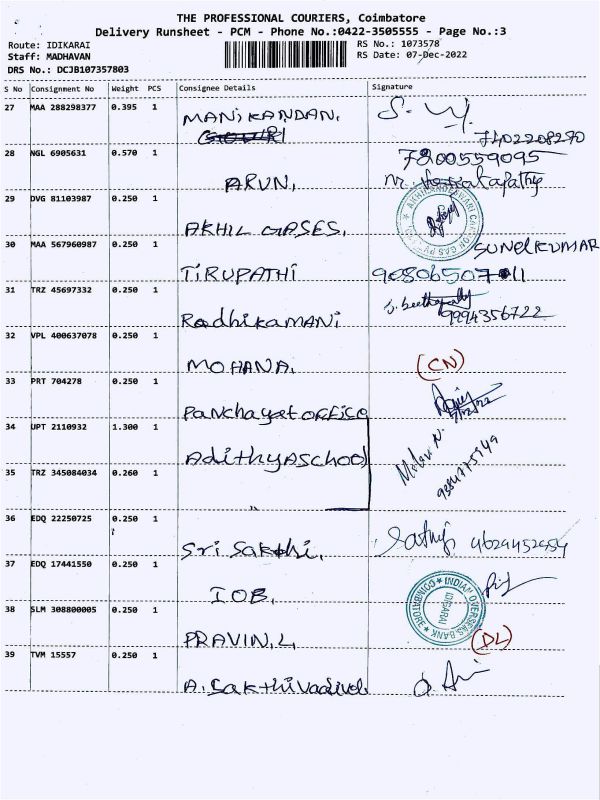 THE PROFESSIONAL COURIERS, Coimbatore
Delivery Runsheet - PCM - Phone No.:0422-3505555 - Page No.:3
Route: IDIKARAI
RS No.: 1073578
Staff: MADHAVAN
RS Date: 07-Dec-2022
DRS No.: DCJB107357803
S No Consignment No Weight PCS Consignee Details Signature
27 MAA 288298377 0.395 1 MANIKANDAN,
7402208270
28 NGL 6905631 0.570 1 ARUN, 7200559095
29 DVG 81103987 0.250 1 AKHIL GASES.
30 MAA 567960987 0.250 1 TIRUPATHI SUNEL KUMAR
31 TRZ 45697332 0.250 1 Radhikamani
9994356722
32 VPL 400637078 0.250 1 MOHANA, (CN)
33 PRT 704278 0.250 1 Panchayat OFFICE
34 UPT 2110932 1.300 1 AdithyA SchooL
35 TRZ 345084034 0.260 1
36 EDQ 22250725 0.250 1 Sri Sakthi,
37 EDQ 17441550 0.250 1 IOB,
INDIAN OVERSEAS BANK
COIMBATORE
IDIGARAI
38 SLM 308800005 0.250 1 PRAVIN, L (DL)
39 TVM 15557 0.250 1 A. Sakthivadivel